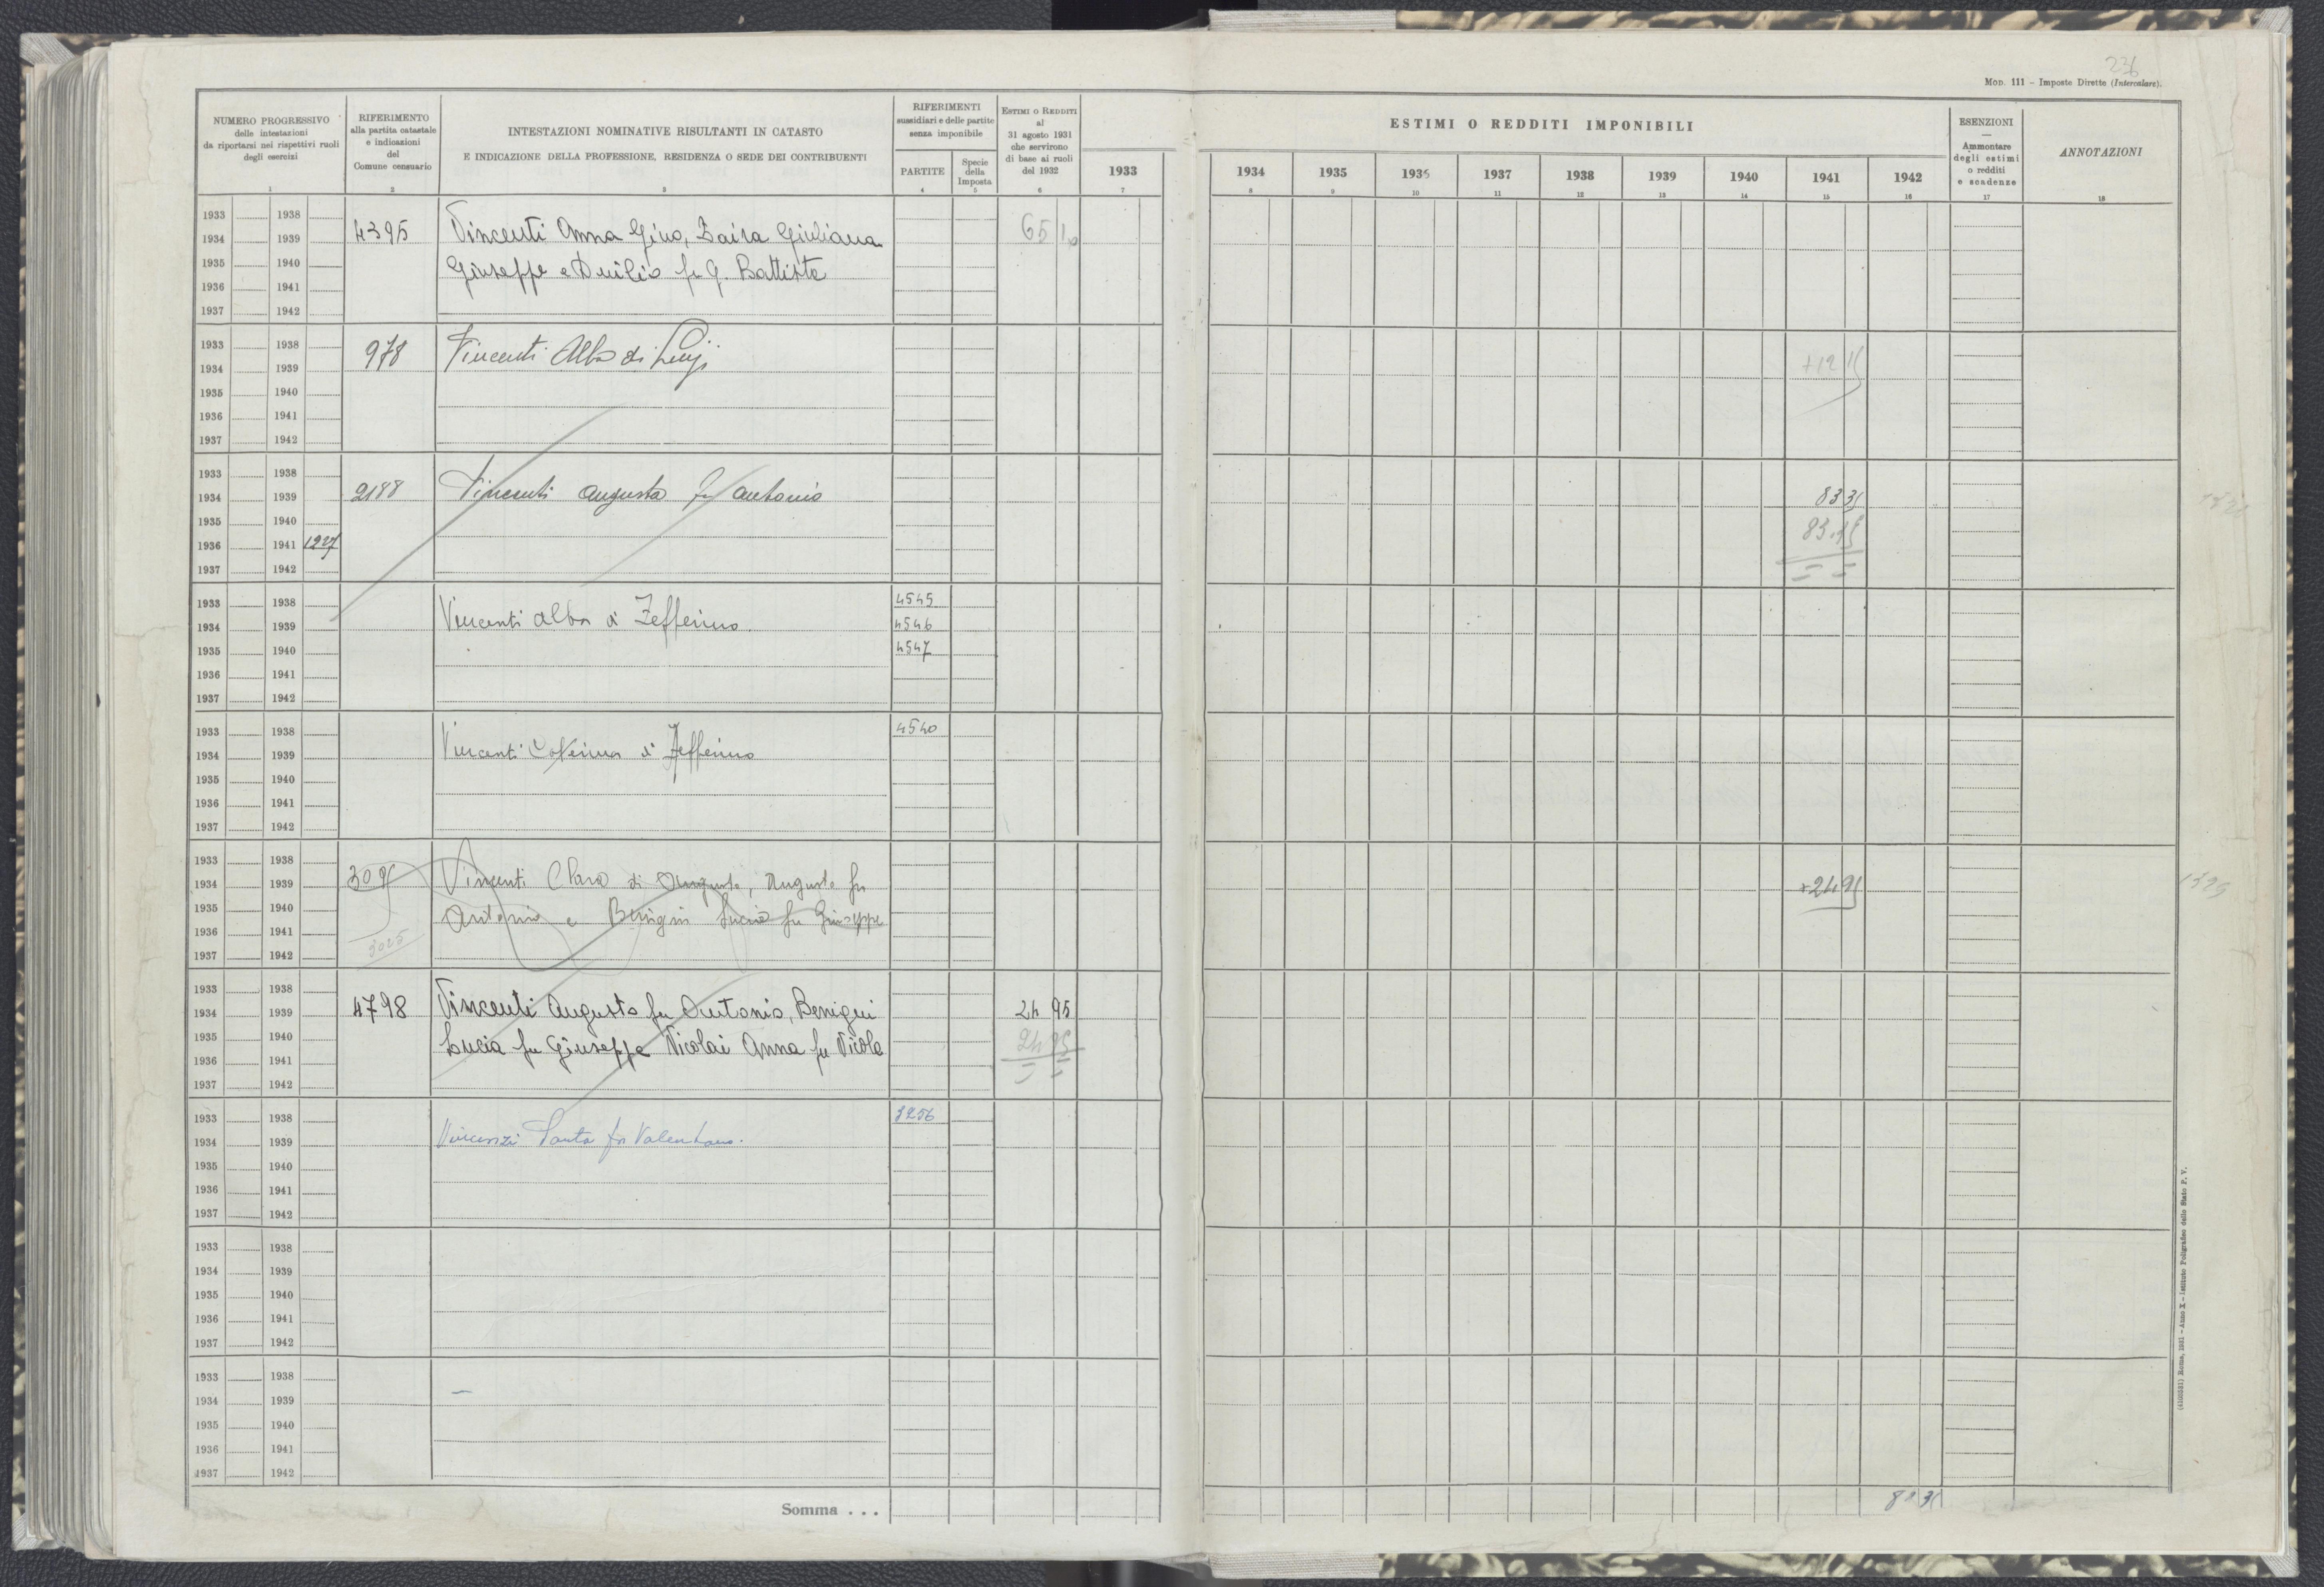 236
MOD. 111 – Imposte Dirette (Intercalare).
NUMERO PROGRESSIVO
delle intestazioni
da riportarsi nei rispettivi ruoli
degli esercizi
1
RIFERIMENTO
alla partita catastale
e indicazioni
del
Comune censuario
2
INTESTAZIONI NOMINATIVE RISULTANTI IN CATASTO
E INDICAZIONE DELLA PROFESSIONE, RESIDENZA O SEDE DEI CONTRIBUENTI
3
RIFERIMENTI
sussidiari e delle partite
senza imponibile
PARTITE
4
Specie
della
Imposta
5
ESTIMI O REDDITI
al
31 agosto 1931
che servirono
di base ai ruoli
del 1932
6
ESTIMI O REDDITI IMPONIBILI
1933
7
1934
8
1935
9
1936
10
1937
11
1938
12
1939
13
1940
14
1941
15
1942
16
ESENZIONI
—
Ammontare
degli estimi
o redditi
e scadenze
17
ANNOTAZIONI
18
1933 1938
1934 1939 4395 Vincenti Anna Gino, Zaira Giuliana 65 10
1935 1940 Giuseppe e Duilio fu G. Battista
1936 1941
1937 1942
1933 1938
1934 1939 978 Vincenti Alba di Luigi +12 15
1935 1940
1936 1941
1937 1942
1933 1938
1934 1939 2188 Vincenti Augusto fu Antonio 83 35
1935 1940
1936 1941
1937 1942
1933 1938 4545
1934 1939 Vincenti Alba di Zefferino 4546
1935 1940 4547
1936 1941
1937 1942
1933 1938 4540
1934 1939 Vincenti Caterina di Zefferino
1935 1940
1936 1941
1937 1942
1933 1938
1934 1939 Vincenti Clara di Augusto, Augusto fu +24 95
1935 1940 Antonio e Benigni Lucia fu Giuseppe
1936 1941 3025
1937 1942
1933 1938
1934 1939 4798 Vincenti Augusto fu Antonio, Benigni 24 95
1935 1940 Lucia fu Giuseppe Nicolai Anna fu Nicola 24 95
1936 1941
1937 1942
1933 1938 3256
1934 1939 Vincenzi Santa fu Valentano.
1935 1940
1936 1941
1937 1942
1933 1938
1934 1939
1935 1940
1936 1941
1937 1942
1933 1938
1934 1939 —
1935 1940
1936 1941
1937 1942
Somma . . .
(4100581) Roma, 1931 – Anno X – Istituto Poligrafico dello Stato P. V.